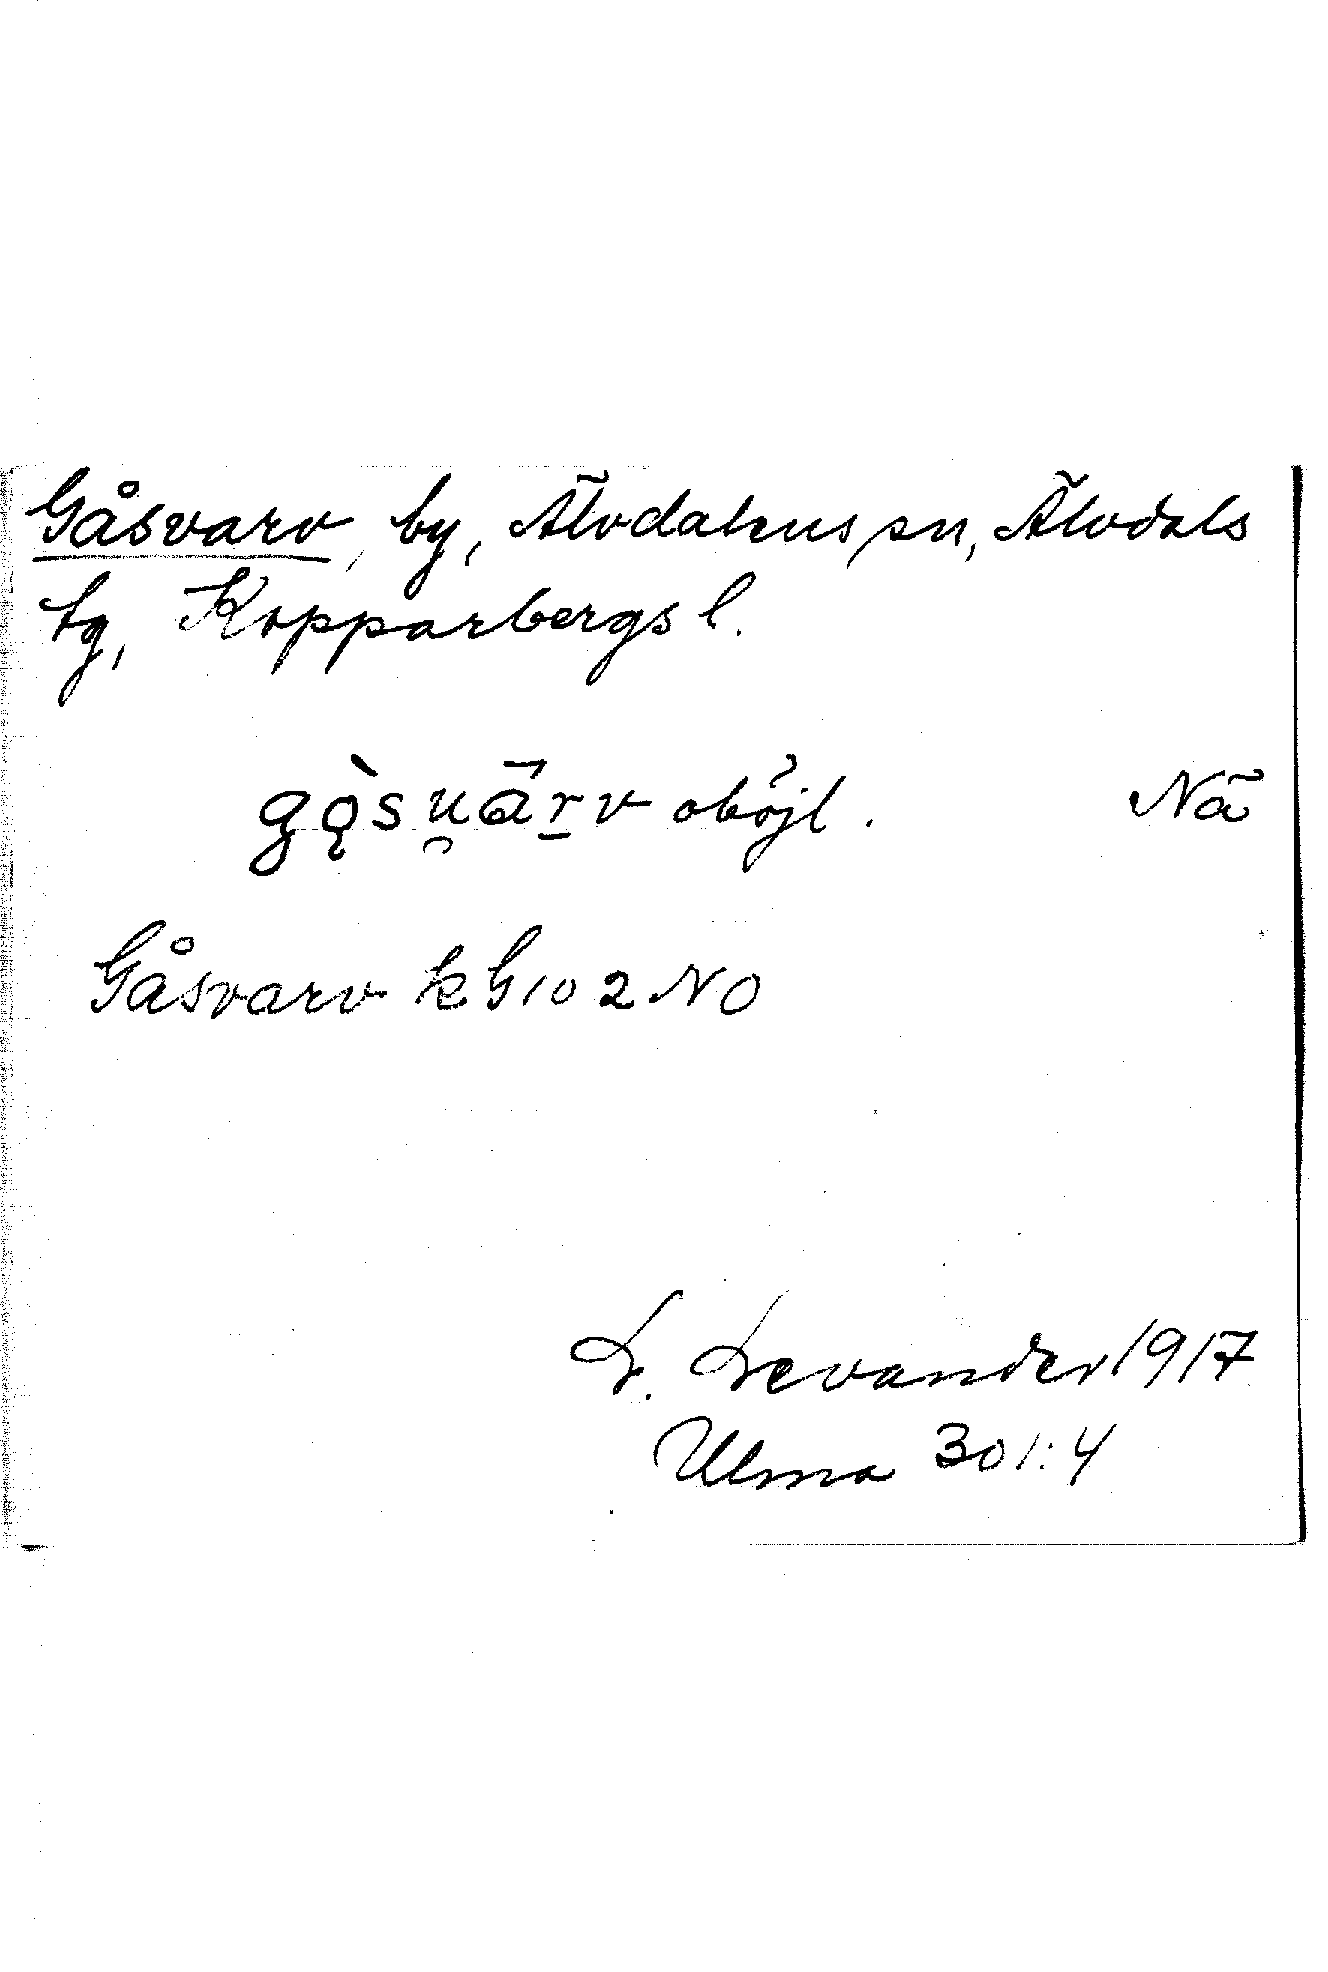 Gåsvarv, by, Älvdalens sn, Älvdals
tg, Kopparbergs l.
gǫ̀su̯ārv oböjl. Nä
Gåsvarv k G 10 2 NO
L. Levander 1917
Ulma 301:4